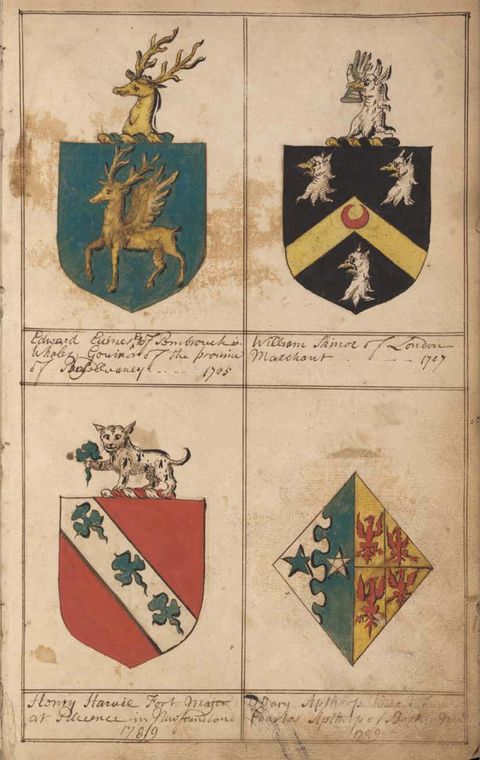 Edward Euines, Esq of Pembrouck in
Whales Gouinor of the prouince
of 1705
William Skinor of London
Marchant 1707
Henry Harvie Fort Major
at Plicence in Newfoundland
178/9
Mary Apthorp Wife
Charles Apthorp of Boston